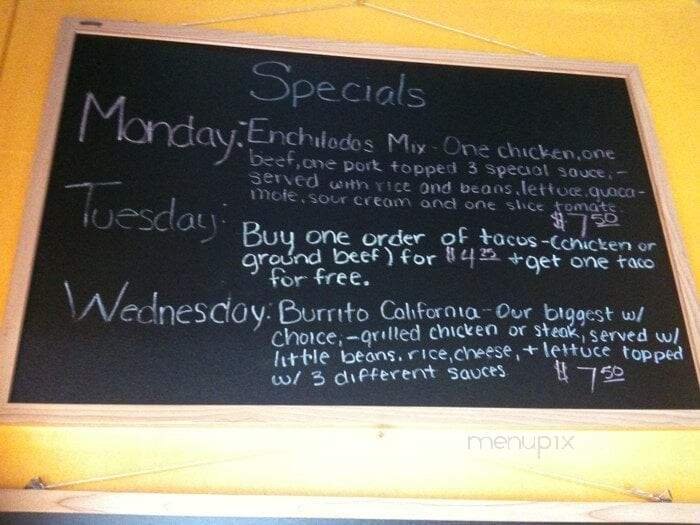 Specials
Monday: Enchiladas Mix - One chicken, one
beef, one pork topped 3 special sauce, -
served with rice and beans, lettuce, guaca-
mole, sour cream and one slice tomate
$7 50
Tuesday:
Buy one order of tacos - (chicken or
ground beef) for $4 25 + get one taco
for free.
Wednesday: Burrito California - Our biggest w/
choice, - grilled chicken or steak, served w/
little beans, rice, cheese, + lettuce topped
w/ 3 different sauces $7 50
menupix